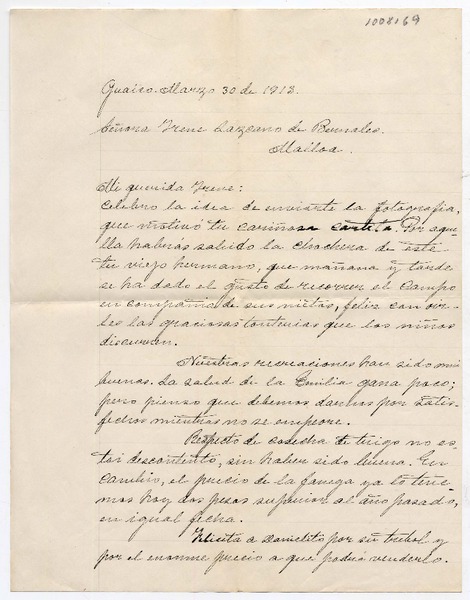 1008169
Quaico. Marzo 30 de 1913.
Señora Irene Lazcano de Bernales.
Malloa.
Mi querida Irene:
Celebro la idea de enviarte la fotografía,
que motivó tu cariñosa cartita. Por aque-
lla habrás sabido la chochera de este
tu viejo hermano, que mañana y tarde
se ha dado el gusto de recorrer el Campo
en compañía de sus nietas, feliz con oir-
les las graciosas tonterías que los niños
discurren.
Nuestras recreaciones han sido mui
buenas. La salud de la Emilia gana poco;
pero pienso que debemos darnos por satis-
fechos mientras no se empeore.
Respecto de cosecha de trigo no es-
toi descontento, sin haber sido buena. En
cambio, el precio de la fanega ya lo tene-
mos hoy dos pesos superior al año pasado,
en igual fecha.
Felicita a Danielito por su trebol y
por el enorme precio a que podrá venderlo.